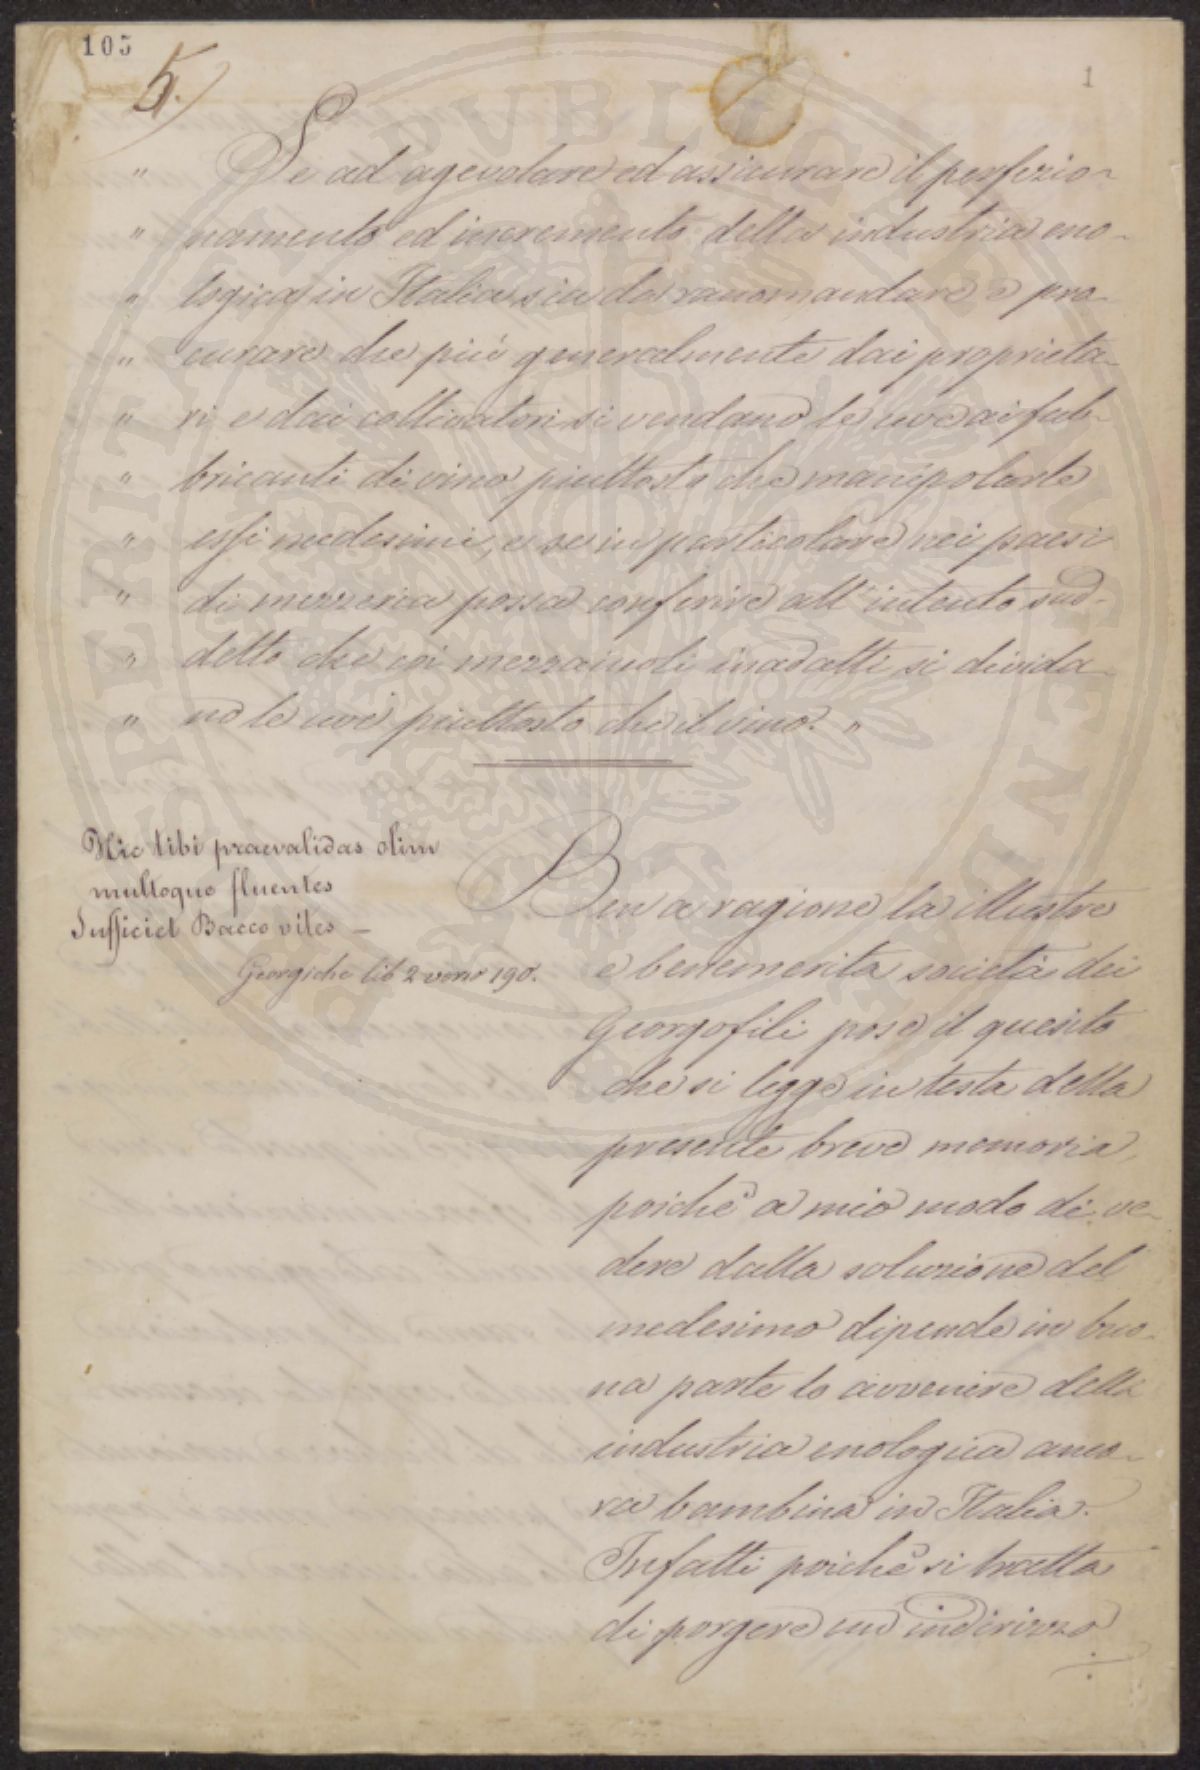 105
5.
1
" Se ad agevolare ed assicurare il perfezio-
" namento ed incremento della industria eno-
" logica in Italia sia da raccomandare e pro-
" curare che più generalmente dai proprieta-
" ri e dai coltivatori si vendano le uve ai fab-
" bricanti di vino piuttosto che manipolarle
" essi medesimi, e se in particolare nei paesi
" di mezzeria possa conferire all'intento sud-
" detto che coi mezzaiuoli inadatti si divida-
" no le uve piuttosto che il vino. "
Hic tibi praevalidas olim
multoque fluentes
Sufficiet Bacco vites —
Georgiche lib 2 verso 190.
Ben a ragione la illustre
e benemerita società dei
Georgofili pose il quesito
che si legge in testa della
presente breve memoria,
poichè a mio modo di ve-
dere dalla soluzione del
medesimo dipende in buo-
na parte lo avvenire della
industria enologica anco-
ra bambina in Italia.
Infatti poichè si tratta
di porgere un indirizzo
PROSPERITATI PUBLICAE AUGENDAE